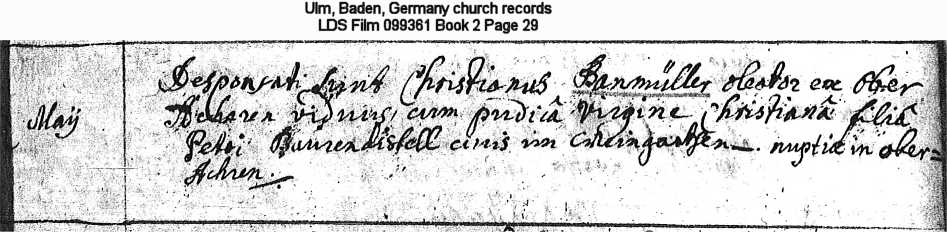 Ulm, Baden, Germany church records
LDS Film 099361 Book 2 Page 29
Desponsati sunt Christianus Banmüller oleator ex Ober
Maÿ
Acheren viduus, cum pudicâ virgine Christianâ filiâ
Petri Baurendistell civis im Weingarthen — . nuptiæ in ober=
Achren.